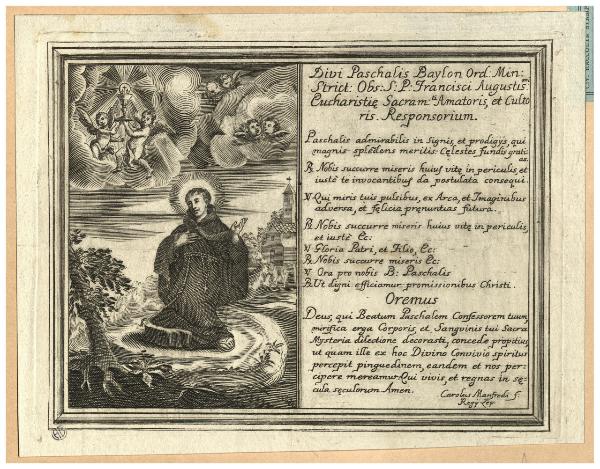 Divi Paschalis Baylon Ord: Min:
Strict: Obs: S: P: Francisci Augustiss:
Eucharistię Sacram:ti Amatoris, et Culto
ris. Responsorium.
Paschalis admirabilis in signis, et prodigÿs qui
magnis splēdens meritis: Cęlestes fundis grati
as.
℟ Nobis succurre miseris huius vitę in periculis, et
iustè te invocantibus da postulata consequi.
℣ Qui miris tuis pulsibus, ex Arca, et Imaginibus
adversa, et fęlicia pręnuntias futura.
℟ Nobis succurre miseris huius vitę in periculis,
et iustè &c:
℣ Gloria Patri, et Filio, &c:
℟ Nobis succurre miseris &c:
℣ Ora pro nobis B: Paschalis
℟ Ut digni efficiamur promissionibus Christi.
Oremus
Deus, qui Beatum Paschalem Confessorem tuum,
mirifica erga Corporis, et Sanguinis tui Sacra
Mysteria dilectione decorasti, concede propitius
ut quam ille ex hoc Divino Convivio spiritus
percepit pinguedinem, eandem et nos per-
cipere mereamur. Qui vivis, et regnas in sę-
cula sęculorum Amen.
Carolus Manfredi f.